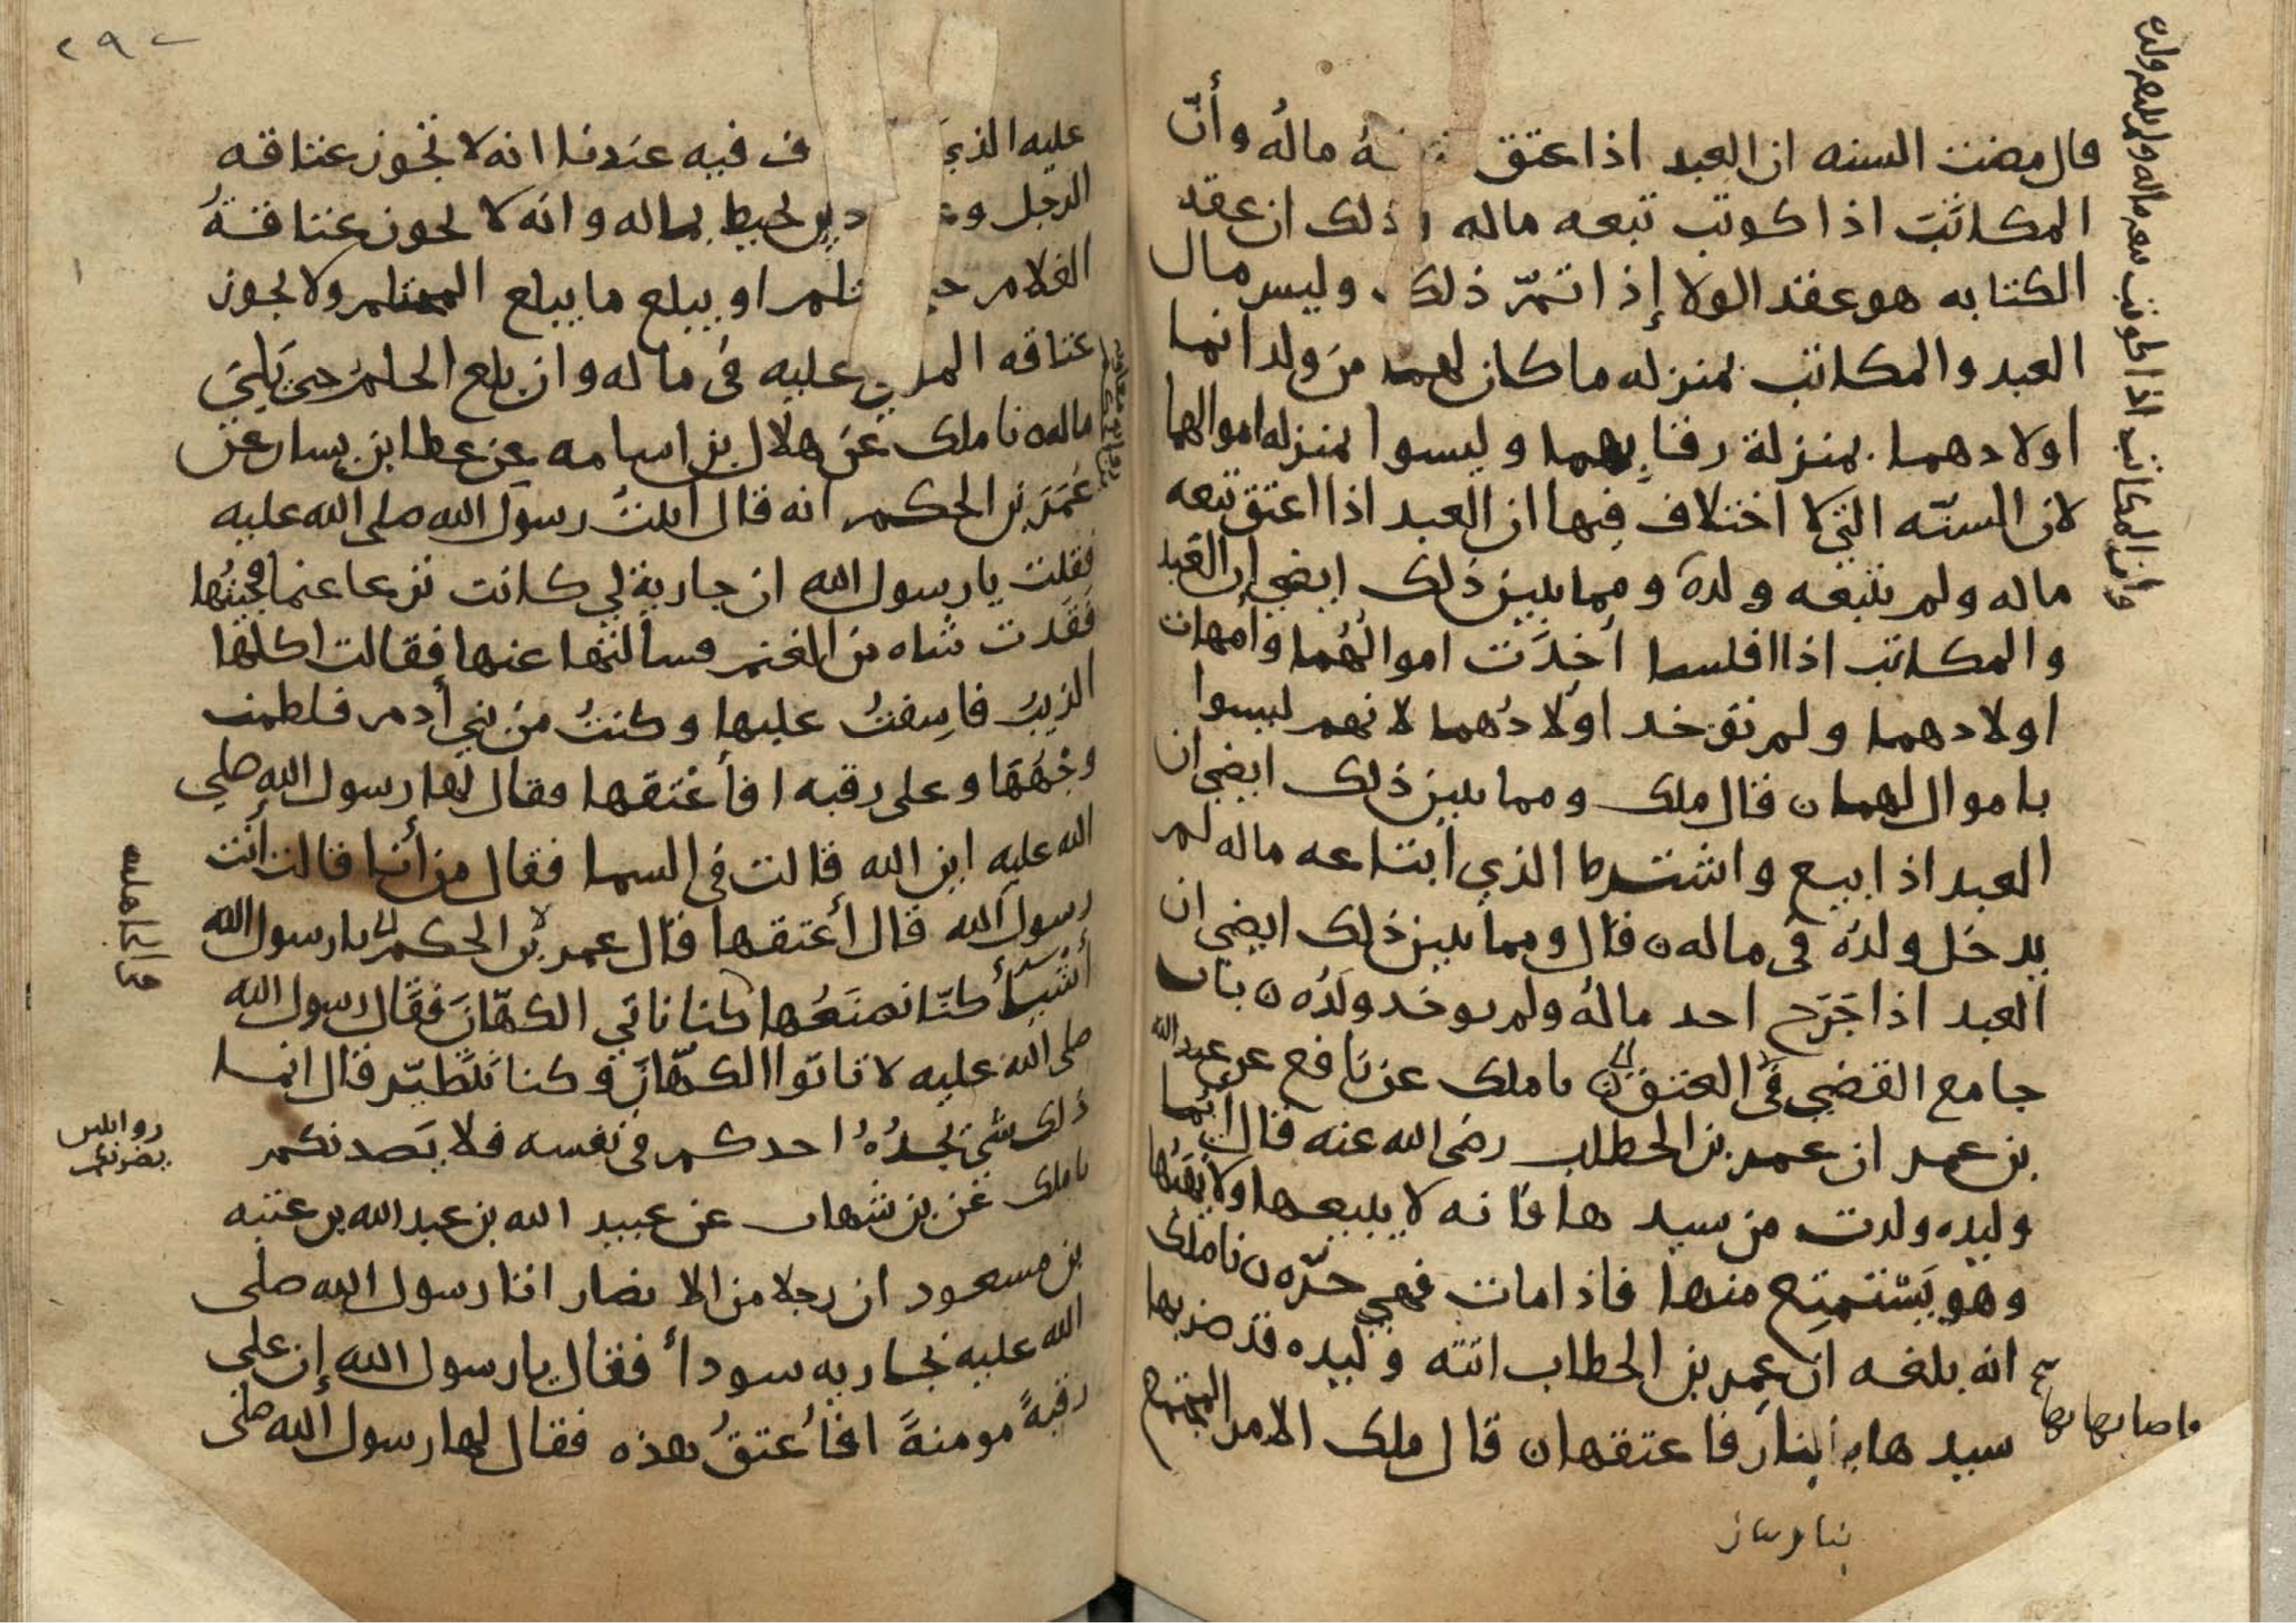 قال مضت السنه ان العبد اذا عتق تبعه ماله وأنّ
المكاتَبَ اذا كوتب تبعه ماله وذلك ان عقد
الكتابه هو عقد الولا إذا تمّ ذلك وليس مال
العبد والمكاتب بمنزله ما كان لهما من ولد انما
اولادهما بمنزلة رقابهما وليسوا بمنزله اموالهما
لان السنّه التي لا اختلاف فيها ان العبد اذا اعتق تبعه
ماله ولم يتبعه ولدهُ ومما يبين ذلك ايضي ان العبد
والمكاتب اذا افلسا اُخِذَت اموالُهُما وأمهات
اولادهما ولم توخد اولادُهما لانهم ليسوا
باموال لهما ن قال ملك ومما يبين ذلك ايضي ان
العبد اذا بيع واشترط الذي ابتاعه ماله لم
يدخل ولدُه في ماله ن قال ومما يبين ذلك ايضي ان
العبد اذا جَرَح اخد مالُه ولم يوخد ولَدُه ن باب
جامع القضي في العتق ن نا ملك عن نافع عن عبد الله
بن عمر ان عمر بن الخطاب رضي الله عنه قال ايُّما
وليده ولدت من سيدها فانه لا يبيعها ولا يهَبُها
وهو يَسْتمتِع منها فاذا مات فهي حرّه ن نا ملك
انه بلغه ان عمر بن الخطاب اتته وليده قد ضربها
سيدها بنار فاعتقها ن قال ملك الامر المجتمع
واصابها بها
وان المكاتب اذا كوتب تبعه ماله ولم يتبعه ولده
عليه الذي ف فيه عندنا انه لا تجوز عتاقه
الرجل وعليه دين يحيط بماله وانه لا يجوز عتاقةُ
الغلام حتى يحتلم او يبلع ما يبلع المحتلم ولا يجوز
عتاقه المولى عليه في ماله وان بلع الحلمُ حتى يَلِيَ
ماله ن نا ملك عَن هلال بن اسامه عن عطا ابن يسار عن
عُمَرَ بن الحكم انه قال اتيتُ رسول الله صلى الله عليه
فقلت يا رسول الله ان جاريةً لي كانت ترعا غنما فجيتُها
فَفَقدت شاه من الغنم فسالتها عنها فقالت اكلها
الذيبُ فاسِفتُ عليها وكنتُ من بني أدم فلطمت
وجْهَهَا وعلى رقبه افأعْتقها فقال لها رسول الله صلى
الله عليه اين الله قالت في السما فقال من أنا قالت أنت
رسول الله قال أعتقها فقال عمر بن الحكم يا رسول الله
أشْيَاءُ كنّا نصنَعُها كنا ناتي الكهّانَ فقال رسول الله
صلى الله عليه لا تاتوا الكهّانَ وكنا نتطيّر قال انما
ذلك شي يجدُهُ احدكم في نفسه فلا يَصدنكم
نا ملك عَن بن شهاب عن عبيد الله بن عبد الله بن عتبه
بن مسعود ان رجلا من الانصار اتا رسول الله صلى
الله عليه بجاريه سوداً فقال يا رسول الله إن علي
رقبةً مومنةً افأُعتقُ هذه فقال لها رسول الله صلى
في الجاهليه
يضرنكم
٢٩